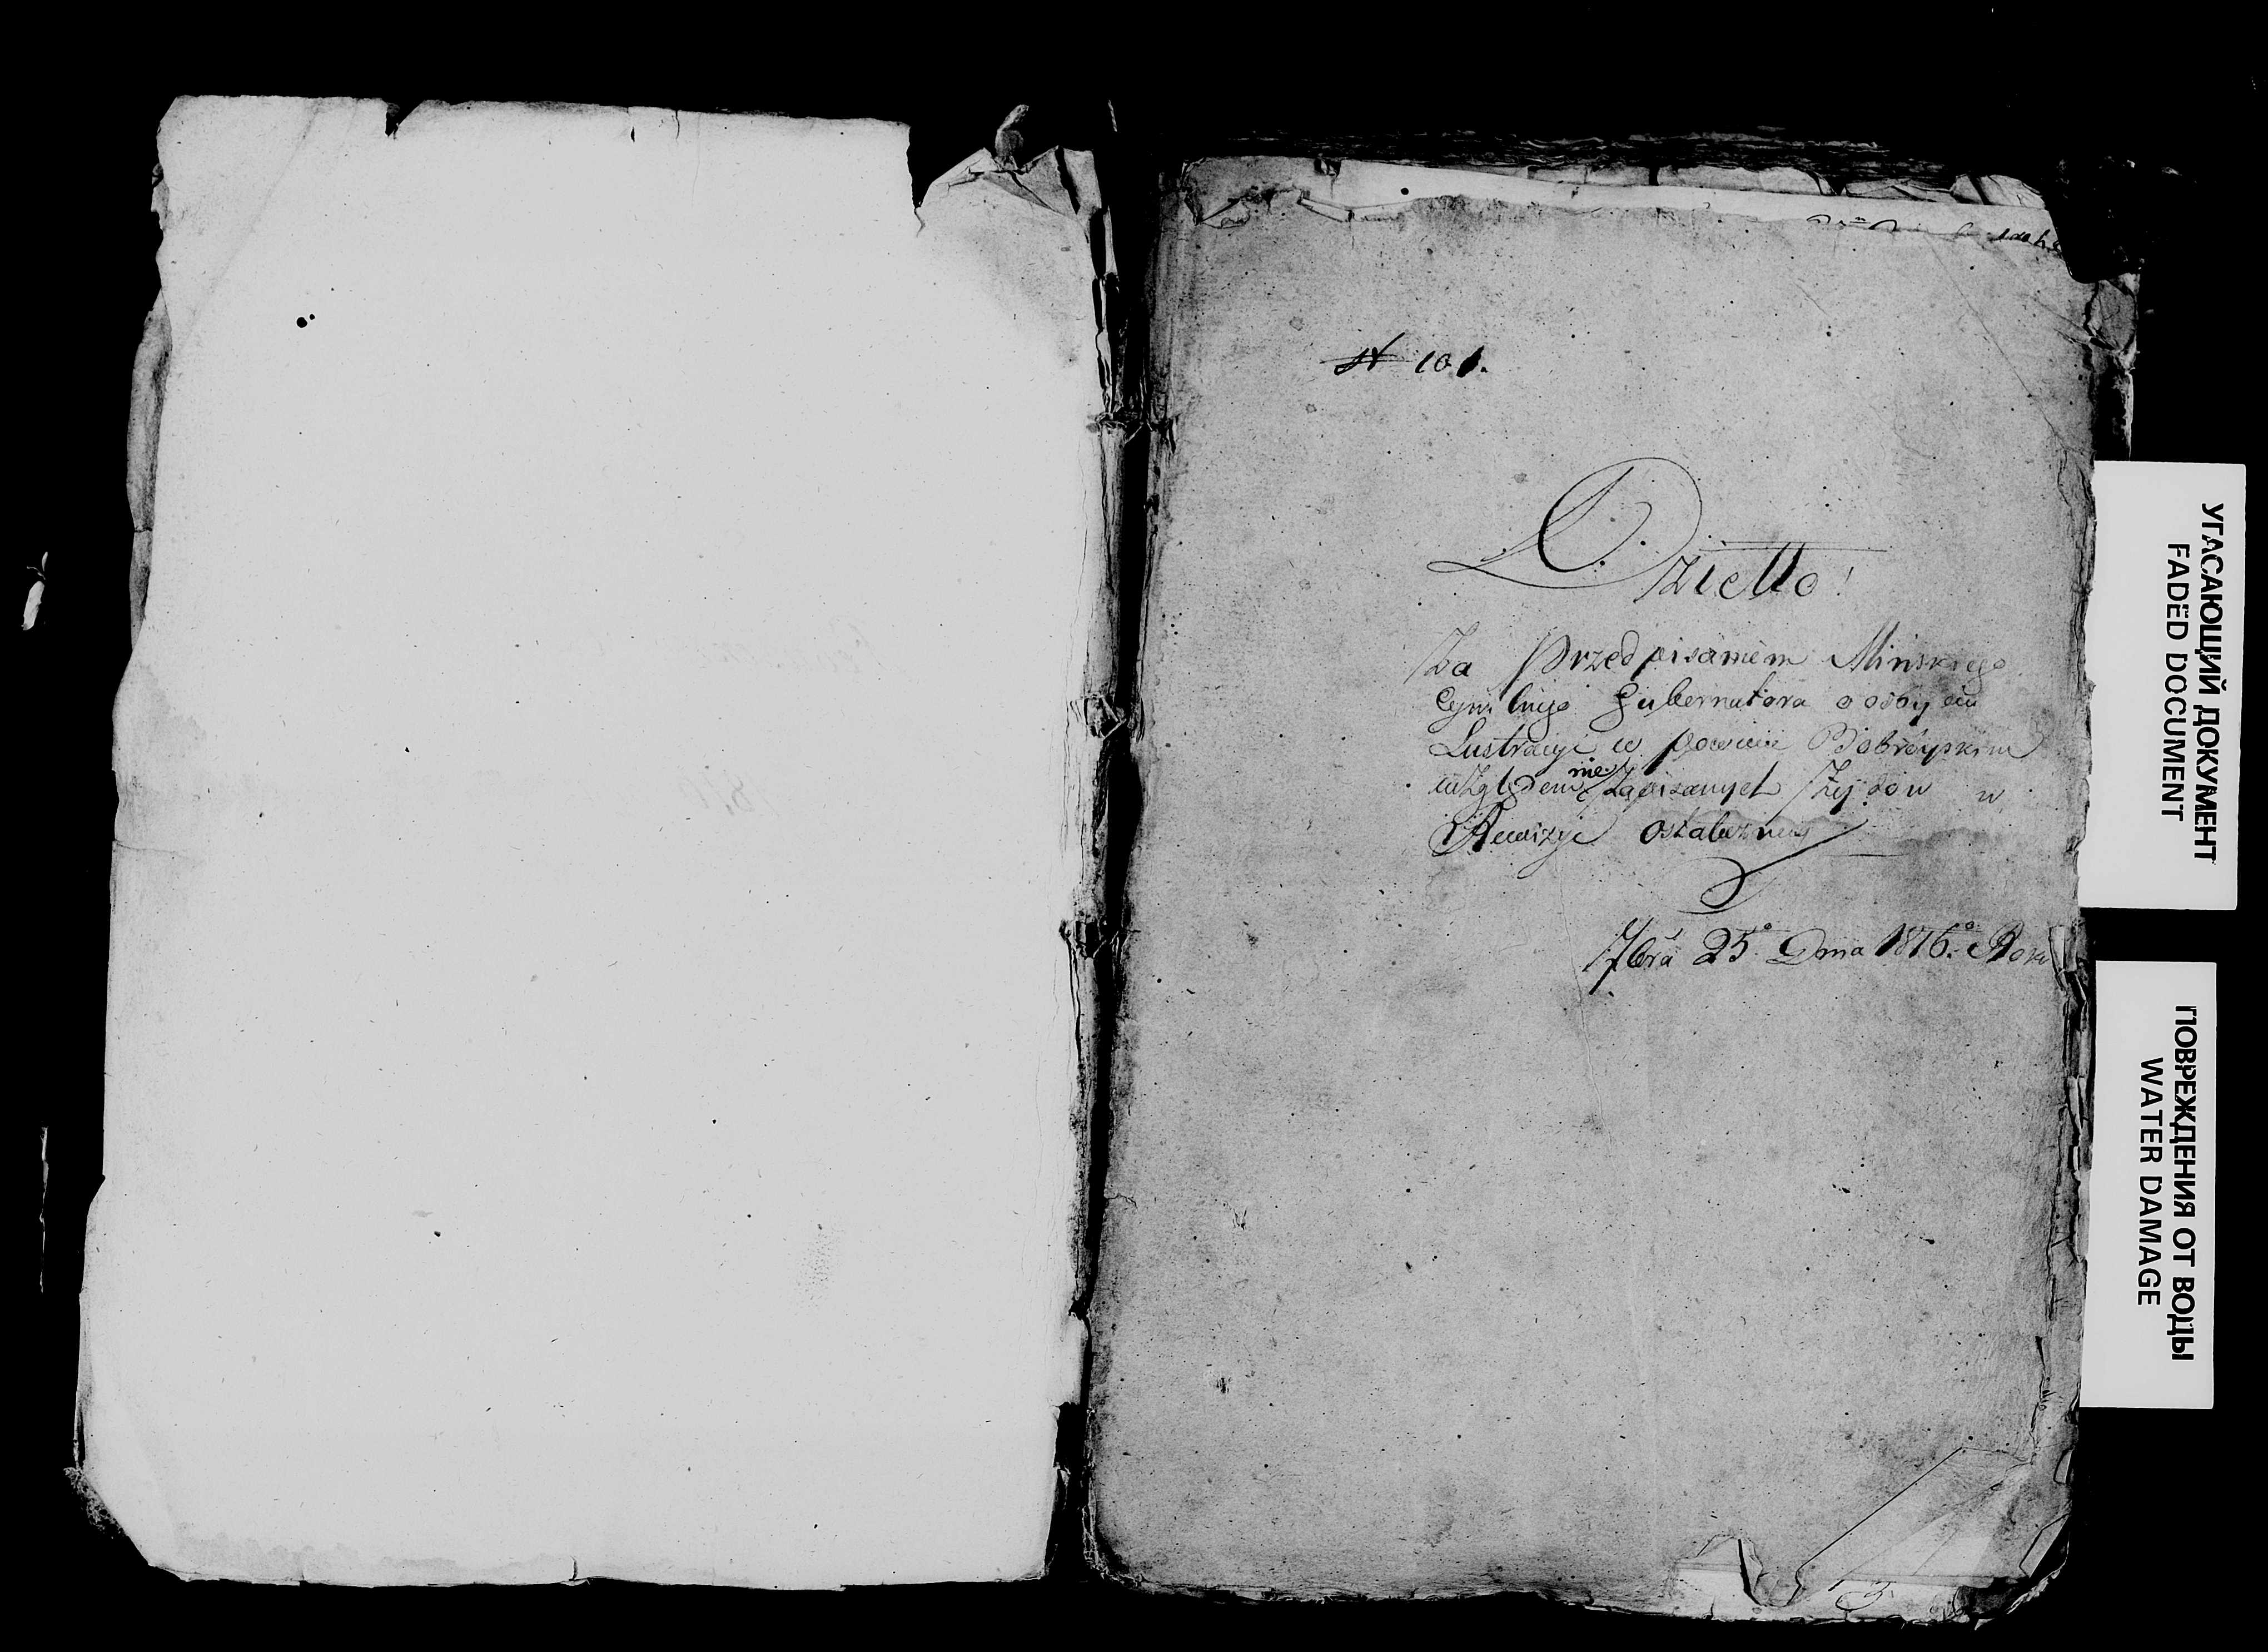 N 101.
Dziełło!
Za Przedpisaniem Minskiego
Cywilnego Gubernatora o odbyciu
Lustracyi w powiecie Bobróyskim
względem nie zapisanych Żydow w
Rewizyi ostateczney
7bra 25° Dnia 1816° Roku
УГАСАЮЩИЙ ДОКУМЕНТ
FADED DOCUMENT
ПОВРЕЖДЕНИЯ ОТ ВОДЫ
WATER DAMAGE